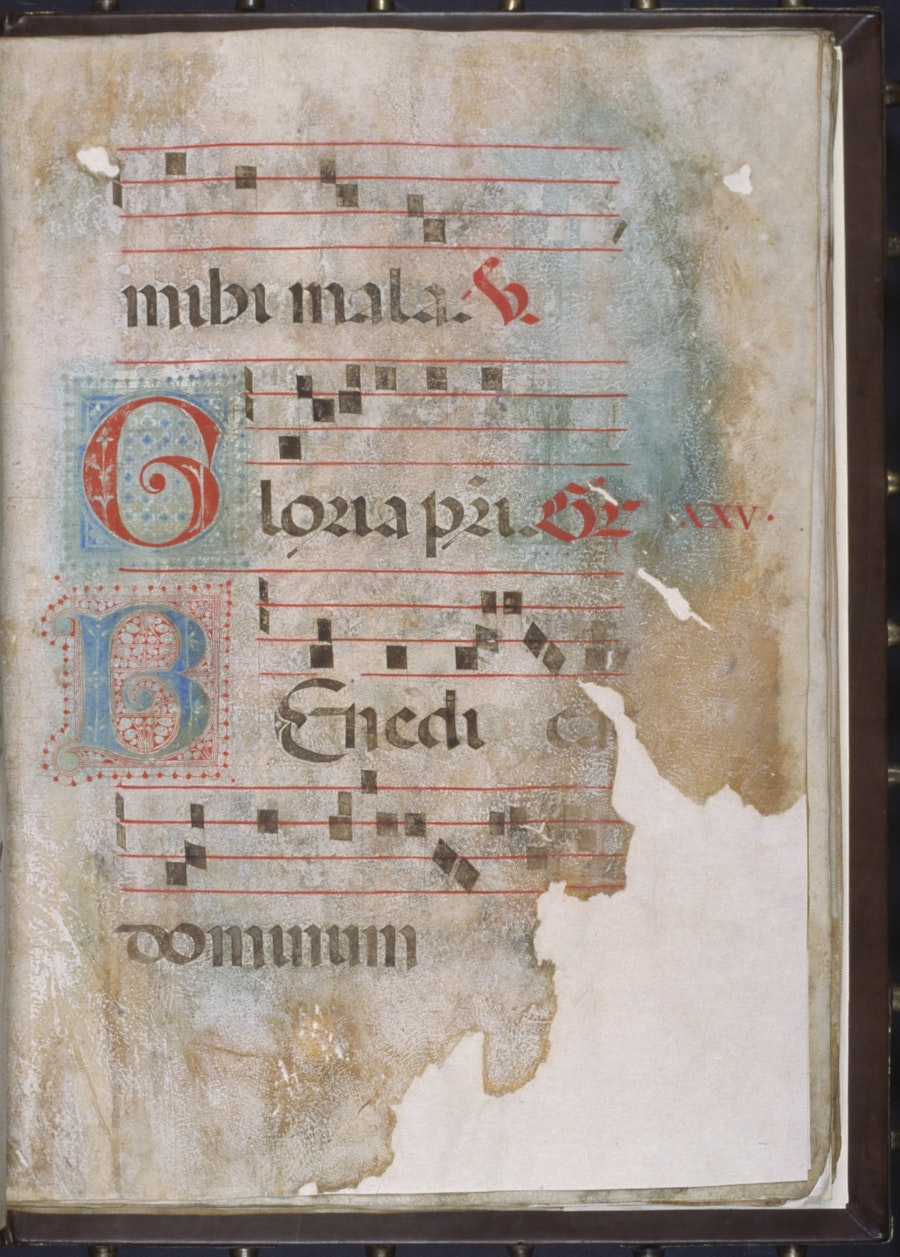 mihi mala. V.
Gloria pri. Gr. XXV.
BEnedi
dominum